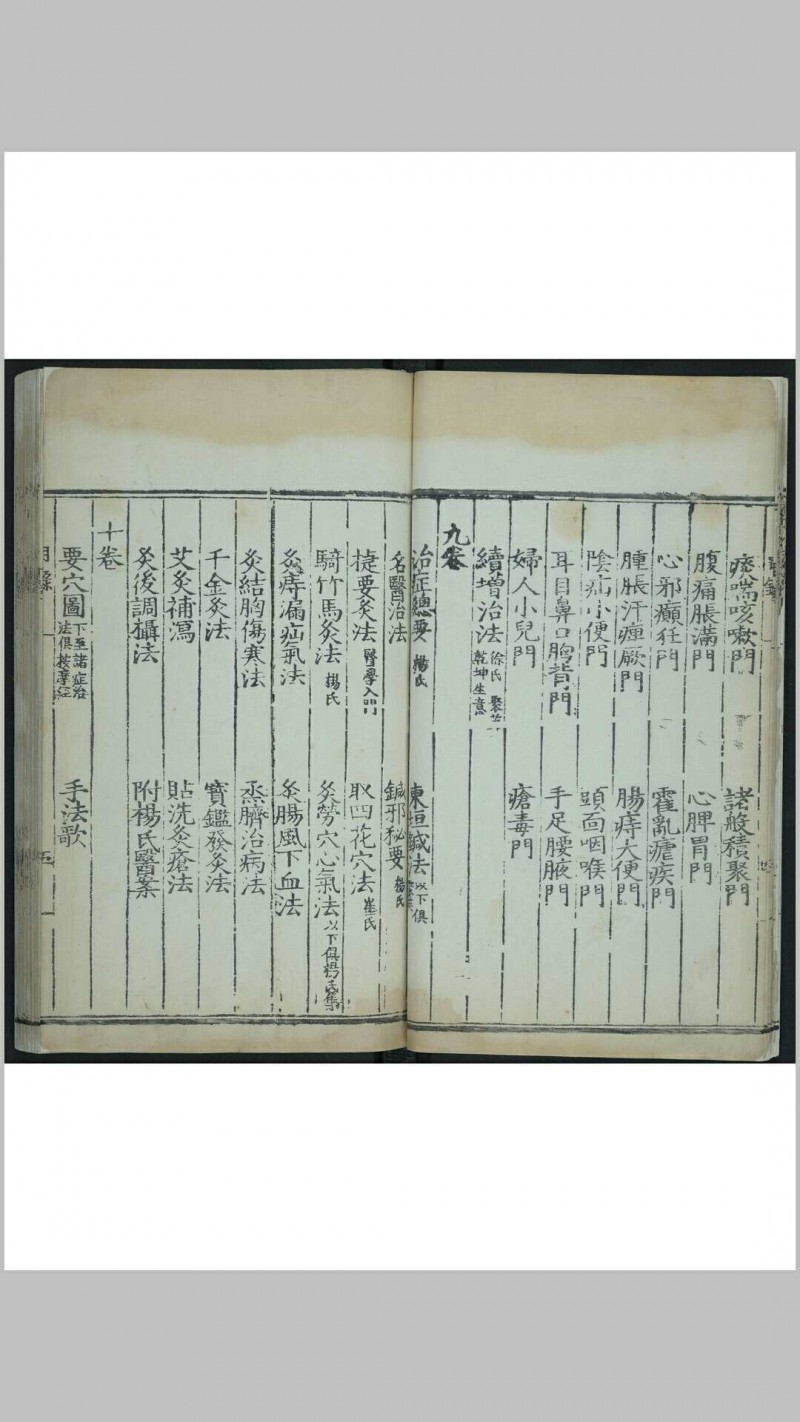 痰喘咳嗽門 諸般積聚門
腹痛脹滿門 心脾胃門
心邪癲狂門 霍亂瘧疾門
腫脹汗痺厥門 腸痔大便門
陰疝小便門 頭面咽喉門
耳目鼻口胸背門 手足腰腋門
婦人小兒門 瘡毒門
續增治法 徐氏 聚英 乾坤生意
九卷
治症總要 楊氏 東垣鍼法 以下俱
名醫治法 鍼邪秘要 楊氏
捷要灸法 醫學入門 取四花穴法 崔氏
騎竹馬灸法 楊氏 灸勞穴心氣法 以下俱楊氏集
灸痔漏疝氣法 灸腸風下血法
灸結胸傷寒法 烝臍治病法
千金灸法 寶鑑發灸法
艾灸補瀉 貼洗灸瘡法
灸後調攝法 附楊氏醫案
十卷
要穴圖 下至諸症治法俱按摩經 手法歌
目錄
五